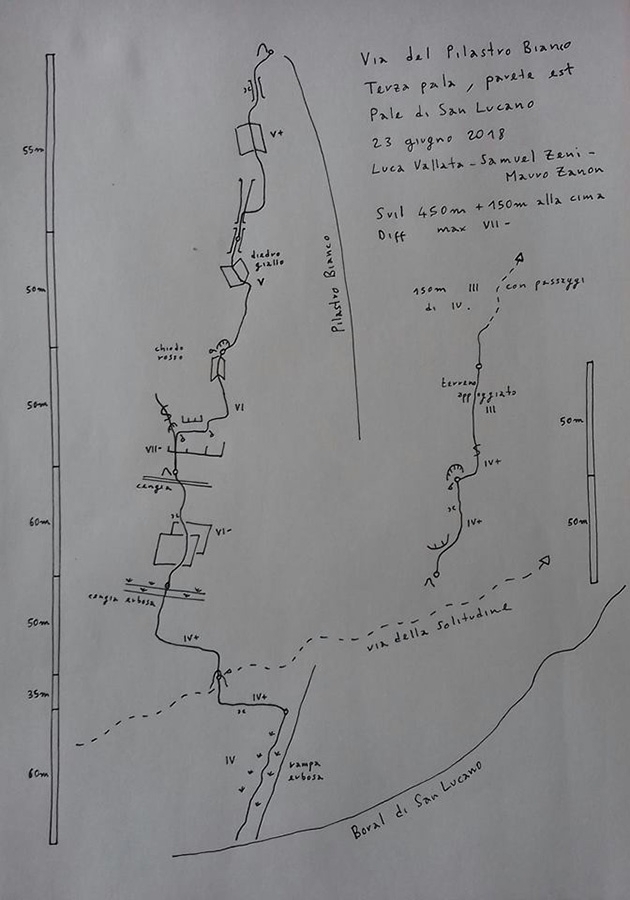 Via del Pilastro Bianco
Terza pala, parete est
Pale di San Lucano
23 giugno 2018
Luca Vallata - Samuel Zeni -
Mauro Zanon
Svil 450m + 150m alla cima
Diff max VII-
55m
V+
50m
diedro
giallo
V
Pilastro Bianco
chiodo
rosso
50m
VI
VII-
cengia
60m
VI-
cengia erbosa
50m
IV+
35m
IV+
60m
IV
rampa
erbosa
150m III con passaggi
di IV.
terreno
appoggiato
III
50m
IV+
50m
IV+
via della solitudine
Boral di San Lucano